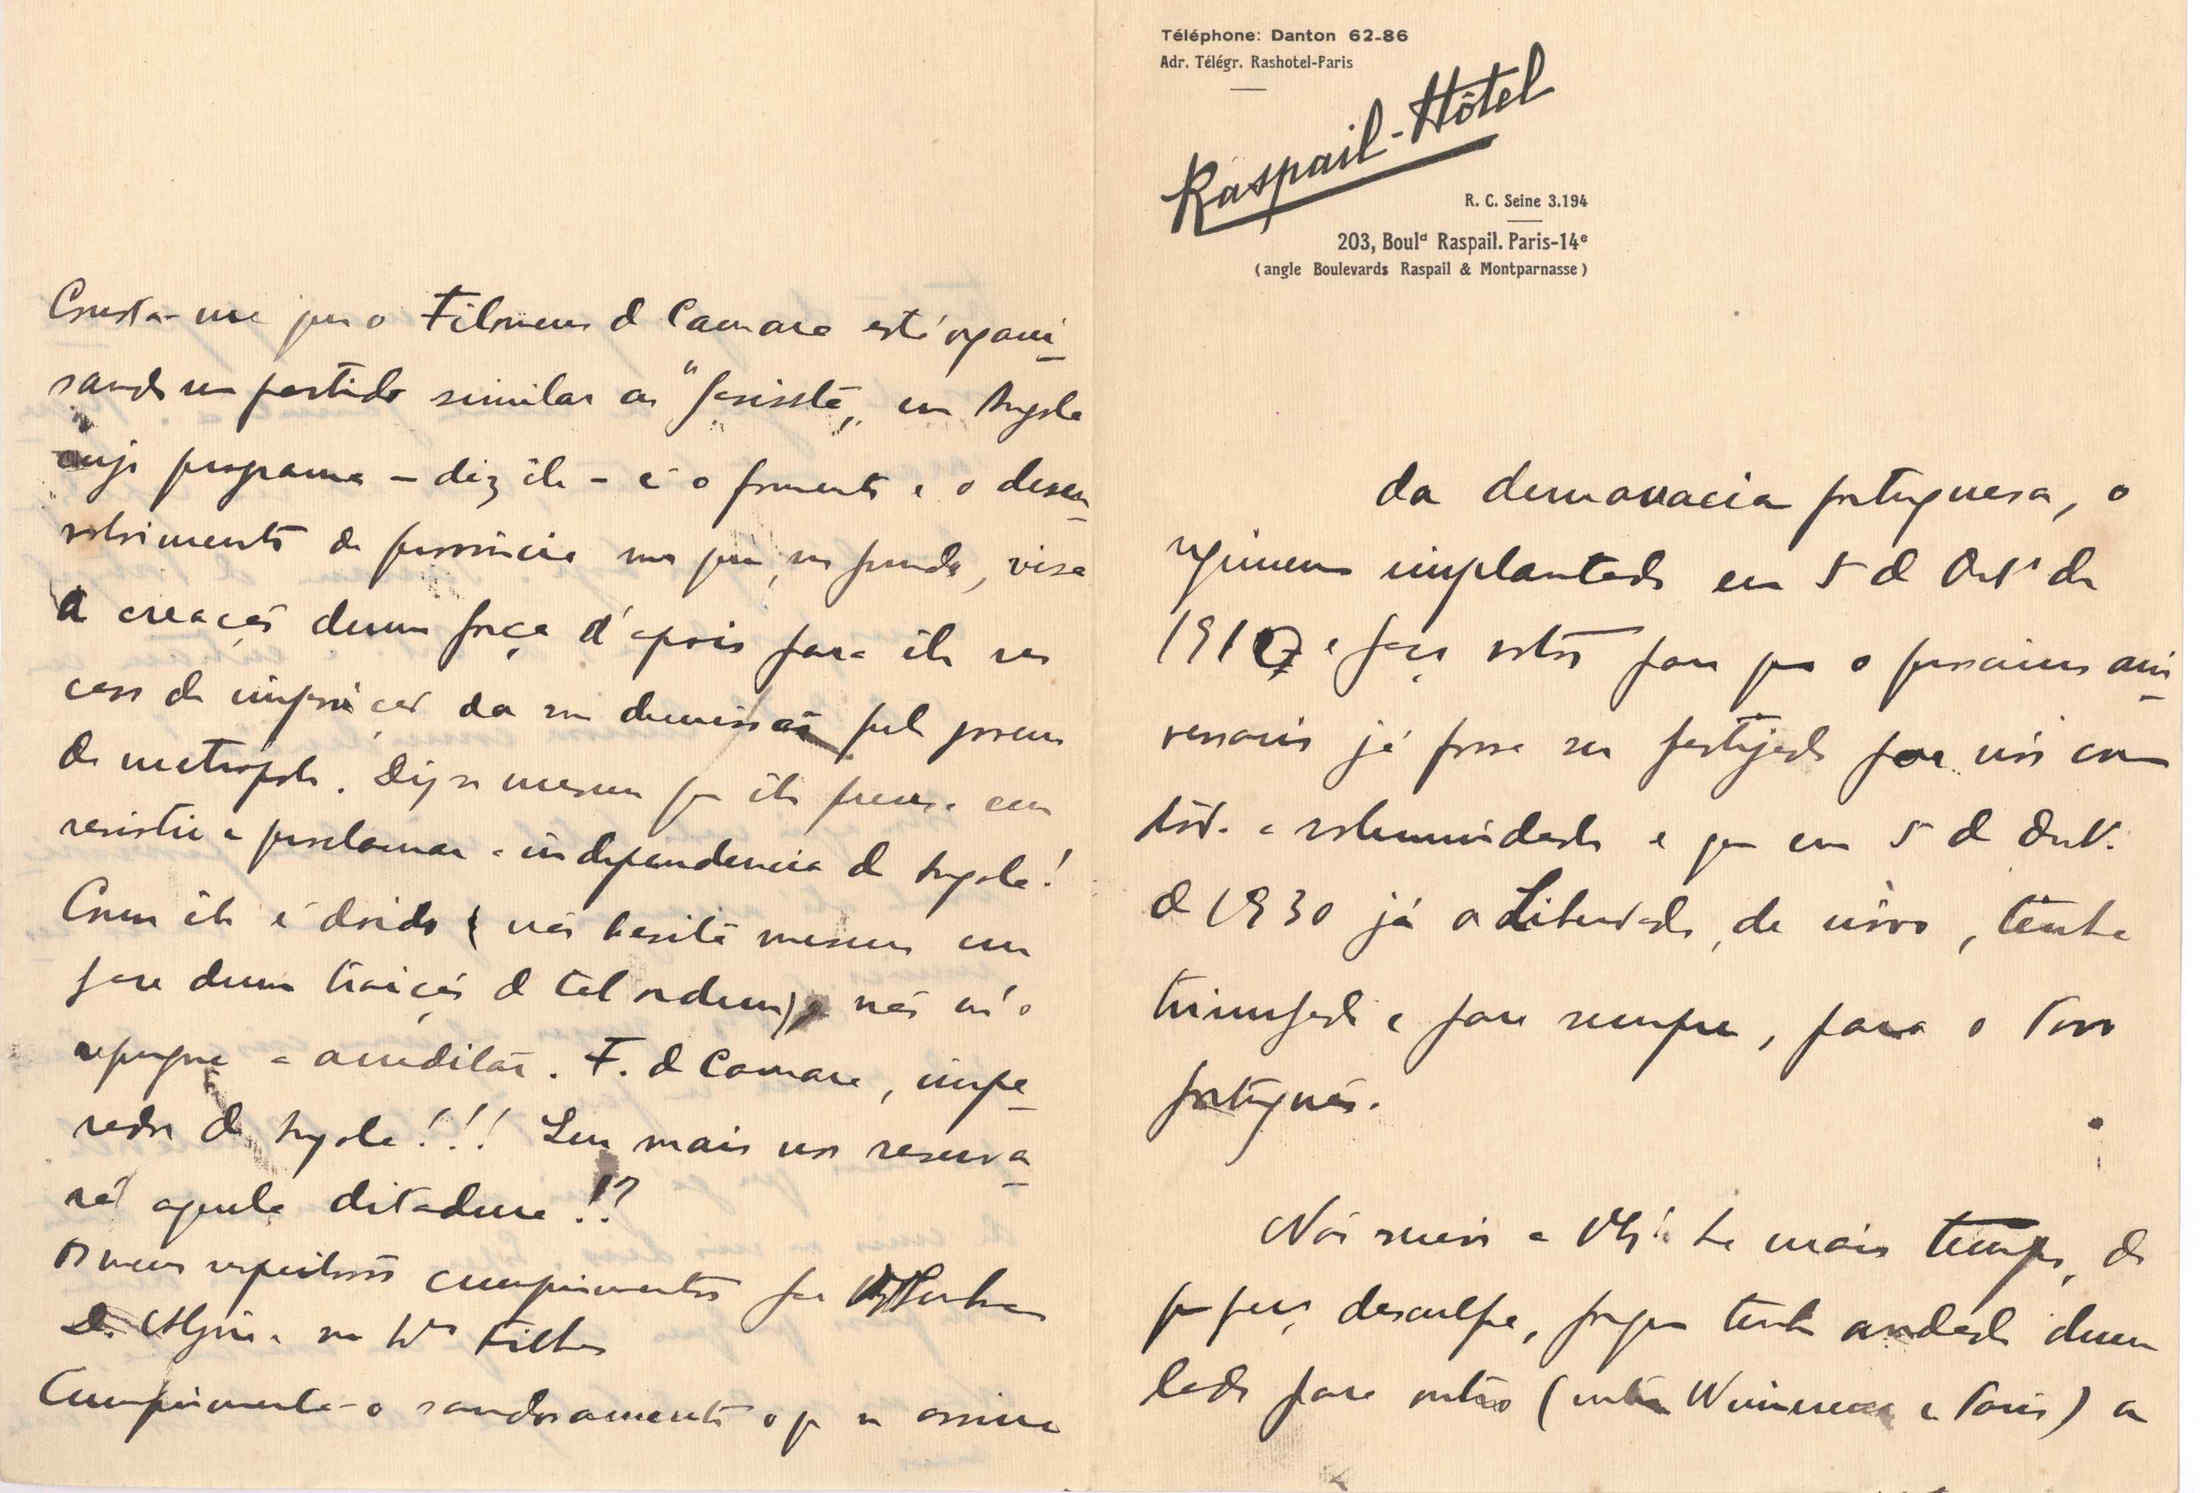 Consta-me que o Filomeno de Camara está organi-
sando um partido similar ao "fascista" em Angola
cujo programa - diz êle - é o fomento e o desen-
volvimento da provincia mas que, no fundo, visa
a creação duma força d'apoio para êle no
caso da imposição da sua demissão pelo governo
da metropole. Diz-se mesmo que êle pensa em
resistir e proclamar a independencia de Angola!
Como êle é doido (não hesita mesmo em
face duma traição de tal ordem), não m'o
repugna a acreditar. F. de Camara, impe-
rador de Angola!!! Que mais nos reserva-
rá aquela ditadura!?
Os meus respeitosos cumprimentos para
D. Elzira e
Cumprimenta-o saudosamente o que se assina
Téléphone: Danton 62-86
Adr. Télégr. Rashotel-Paris
Raspail-Hôtel
R. C. Seine 3.194
203, Boul<sup>d</sup> Raspail. Paris-14<sup>e</sup>
(angle Boulevards Raspail & Montparnasse)
da democracia portuguesa, o
regimen implantado em 5 de Out.º de
1910 e faço votos para que o proximo ani-
versario já possa ser festejado por nós com
toda a solemnidade e que em 5 de Out.
de 1930 já a Liberdade, de nôvo, tenha
triunfado e para sempre, para o Povo
português.
Não escrevi a V. Ex.ª ha mais tempo, do
que peço desculpa, porque tenho andado dum
lado para outro (entre Wimereux e Paris) a